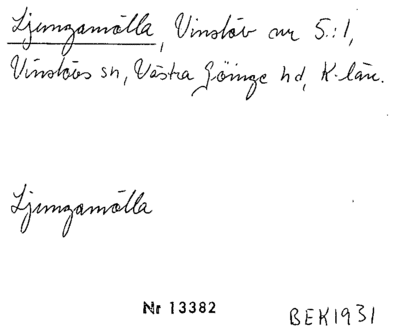 Ljungamölla, Vinslöv nr 5:1,
Vinslövs sn, Västra Göinge hd, K-län.
Ljungamölla
Nr 13382
BEK1931